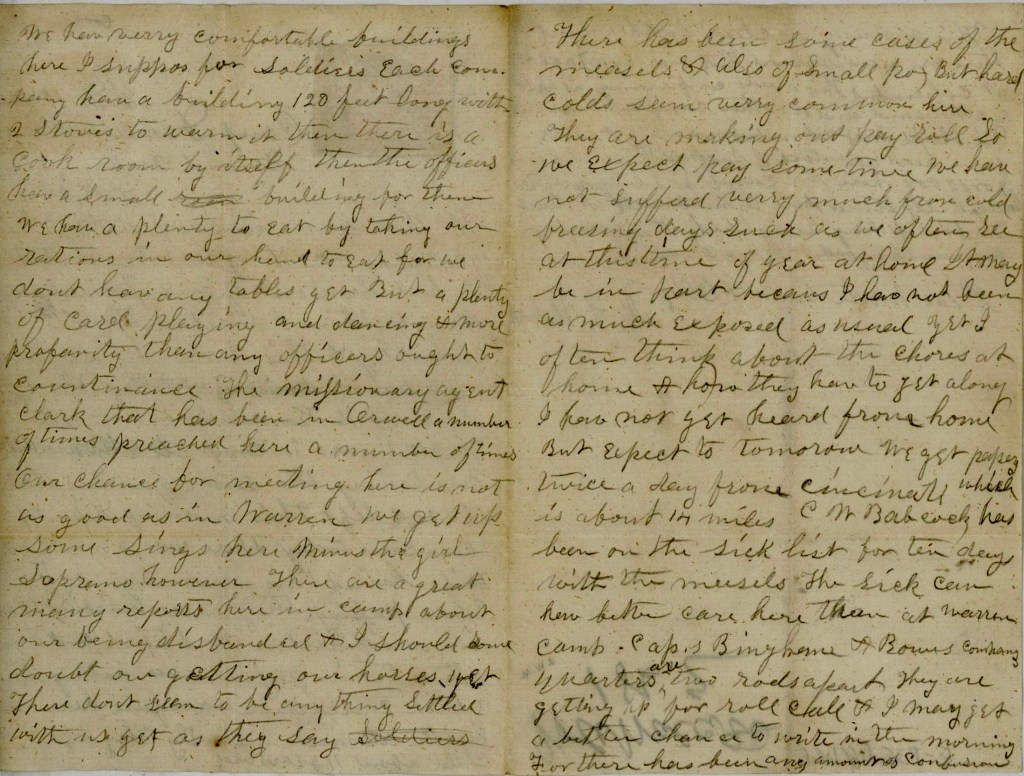 We hav verry comfortable buildings
here I suppos for Soldiers Each Com-
pany hav a building 120 feet long with
2 stoves to warm it then there is a
Cook room by itself then the officers
hav a small room building for them
We hav a plenty to Eat by taking our
rations in our hand to Eat for we
dont hav any tables yet But a plenty
of Card playing and dancing & more
profanity than any officers ought to
countinance The missionary agent
Clark that has been in Orwell a number
of times preached here a number of times
Our chance for meeting here is not
as good as in Warren We get up
some sings here Minus the girl
Soprano however There are a great
many reports here in camp about
our being disbanded & I should some
doubt our getting our horses yet
There dont seem to be any thing settled
with us yet as they say Soldiers
There has been some cases of the
measels & also of small pox But hard
colds seem verry common here
They are making out pay Roll So
we Expect pay sometime We hav
not Sufferd verry much from cold
freasing days such as we often see
at this time of year at home It may
be in part becaus I hav not been
as much Exposed as usual yet I
often think about the chores at
home & how they hav to get along
I hav not yet heard from home
But Expect to tomorow We get papers
twice a day from Cincinati which
is about 14 miles C W Babcock has
been on the sick list for ten days
with the meesels The Sick can
hav better care here than at Warren
Camp. Capts Binghame & Bowers company
quarters are two rods apart They are
getting up for roll Call & I may get
a better chance to write in the morning
For there has been any amount of Confusion